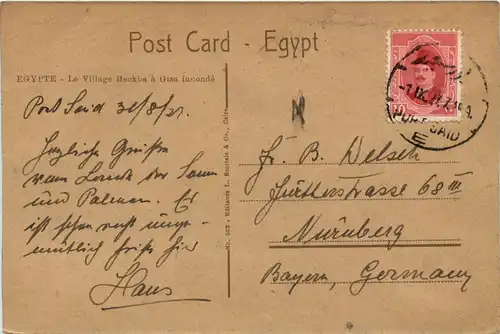 Post Card - Egypt
EGYPTE - Le Village Heckba à Giza innondé
Port Said 31/8/27.
Herzliche Grüsse
vom Lande der Sonne
und Palmen. Es
ist schon recht unge-
mütlich heiss hier
Hans
No. 502 - Editions L. Scortzis & Co., Caire
Fr. B. Delsch
Fürtherstrasse 68 III
Nürnberg
Bayern, Germany
10
PORT SAID
E